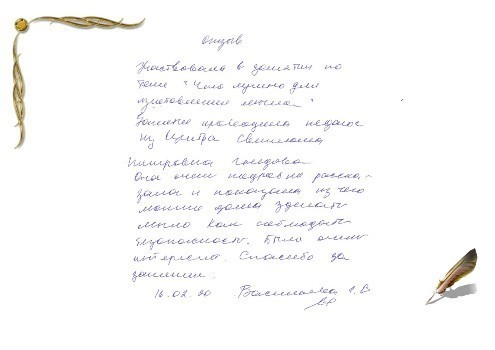 отзыв
Участвовала в занятии по
теме "Что нужно для
изготовления мыла"
Занятие проводила педагог
из Центра Светлана

Она очень подробно расска-
зала и показала из чего
можно дома зделать
мыло как соблюдать
безопасность. Было очень
интересно. Спасибо за
занятие.
16.02.20